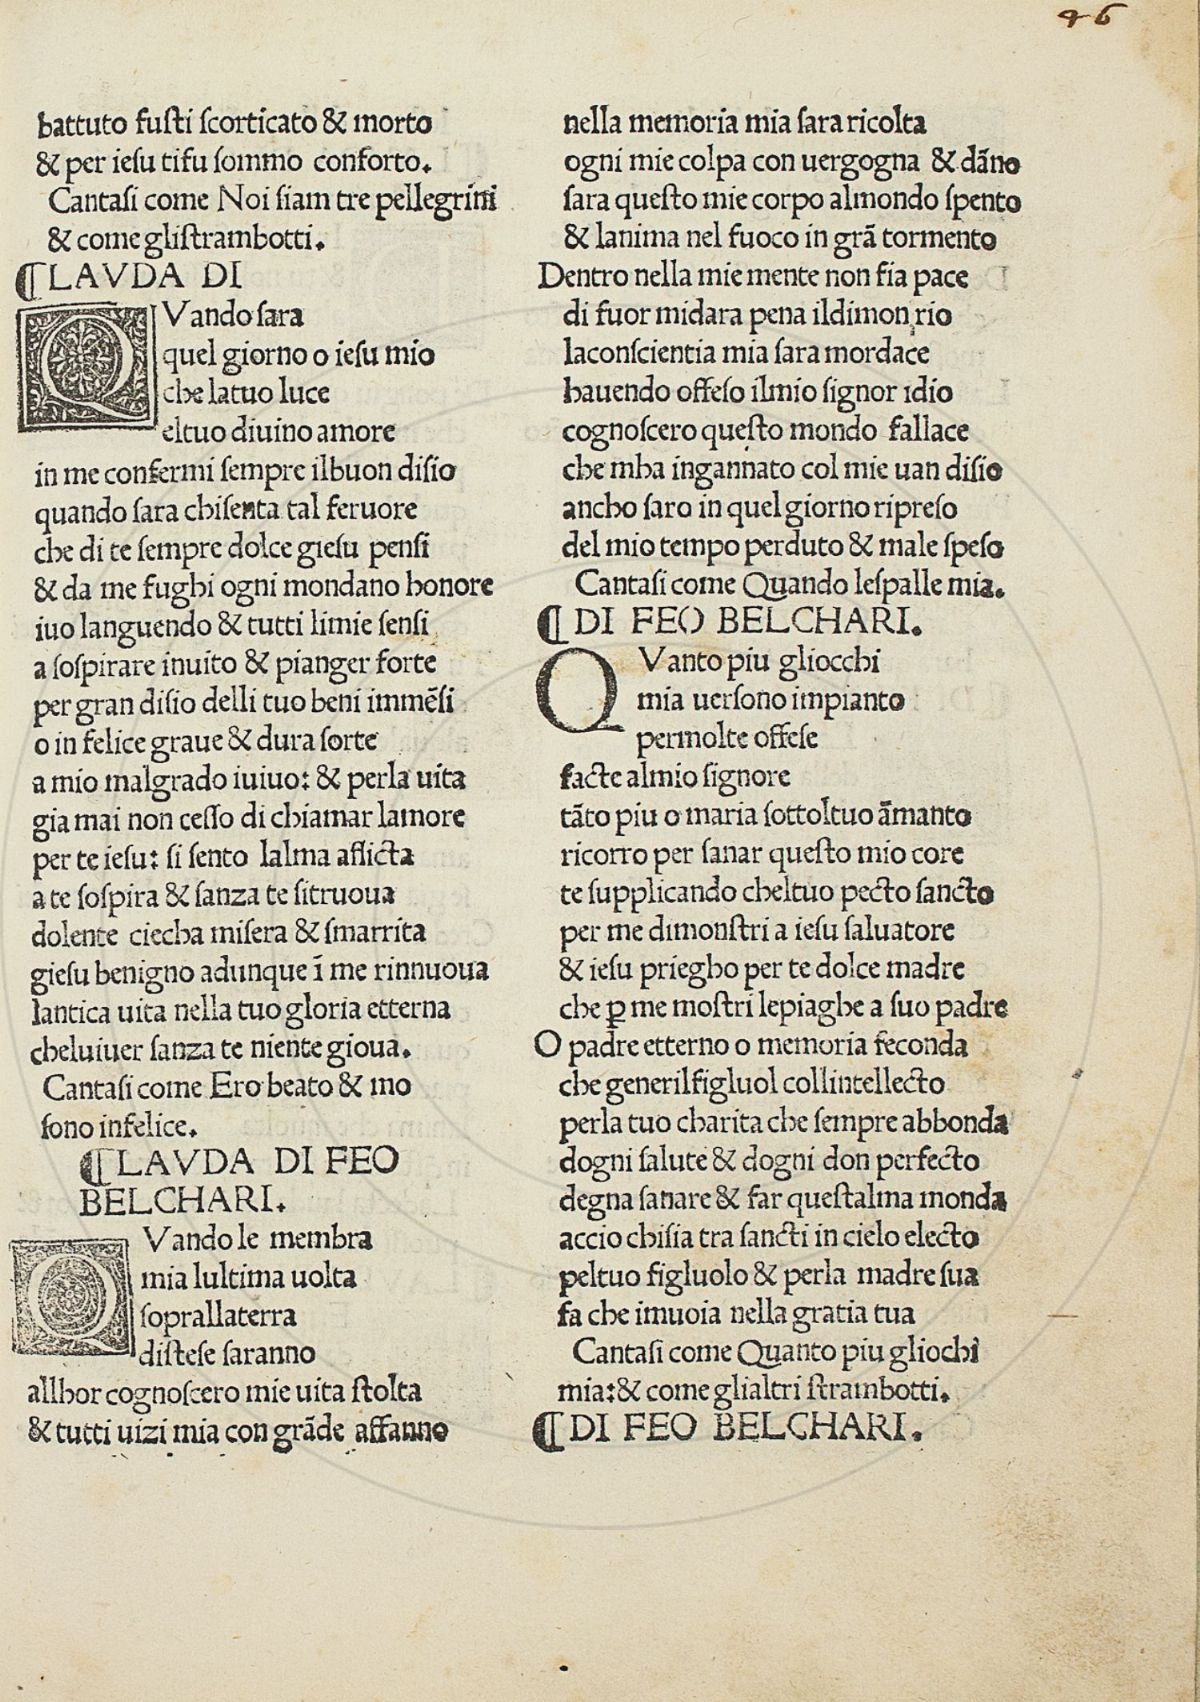 46
battuto fusti scorticato & morto
& per iesu tifu sommo conforto.
Cantasi come Noi siam tre pellegrini
& come glistrambotti.
¶LAVDA DI
QVando sara
quel giorno o iesu mio
che latuo luce
eltuo diuino amore
in me confermi sempre ilbuon disio
quando sara chisenta tal feruore
che di te sempre dolce giesu pensi
& da me fughi ogni mondano honore
iuo languendo & tutti limie sensi
a sospirare inuito & pianger forte
per gran disio delli tuo beni immēsi
o in felice graue & dura sorte
a mio malgrado iuiuo: & perla uita
gia mai non cesso di chiamar lamore
per te iesu: si sento lalma aflicta
a te sospira & sanza te sitruoua
dolente ciecha misera & smarrita
giesu benigno adunque ī me rinnuoua
lantica uita nella tuo gloria etterna
cheluiuer sanza te niente gioua.
Cantasi come Ero beato & mo
sono infelice.
¶LAVDA DI FEO
BELCHARI.
QVando le membra
mia lultima uolta
soprallaterra
distese saranno
allhor cognoscero mie uita stolta
& tutti uizi mia con grāde affanno
nella memoria mia sara ricolta
ogni mie colpa con uergogna & dāno
sara questo mie corpo almondo spento
& lanima nel fuoco in grā tormento
Dentro nella mie mente non fia pace
di fuor midara pena ildimon rio
laconscientia mia sara mordace
hauendo offeso ilmio signor idio
cognoscero questo mondo fallace
che mha ingannato col mie uan disio
ancho saro in quel giorno ripreso
del mio tempo perduto & male speso
Cantasi come Quando lespalle mia.
¶DI FEO BELCHARI.
QVanto piu gliocchi
mia uersono impianto
permolte offese
facte almio signore
tāto piu o maria sottoltuo āmanto
ricorro per sanar questo mio core
te supplicando cheltuo pecto sancto
per me dimonstri a iesu saluatore
& iesu priegho per te dolce madre
che ꝑ me mostri lepiaghe a suo padre
O padre etterno o memoria feconda
che generilfigluol collintellecto
perla tuo charita che sempre abbonda
dogni salute & dogni don perfecto
degna sanare & far questalma monda
accio chisia tra sancti in cielo electo
peltuo figluolo & perla madre sua
fa che imuoia nella gratia tua
Cantasi come Quanto piu gliochi
mia:& come glialtri strambotti.
¶DI FEO BELCHARI.